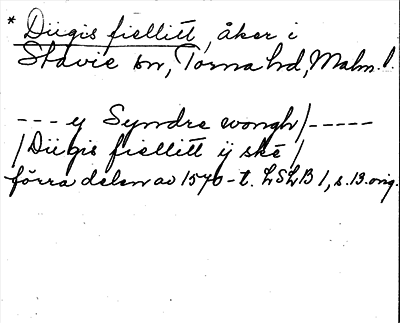 * Diigis fiellitt, åker i
Stävie sn, Torna hd, Malm. l.
--- ey Syndre wongh/-----
/Diigis fiellitt ij skè/
förra delen av 1570-t. LSLB 1, s. 13. orig.